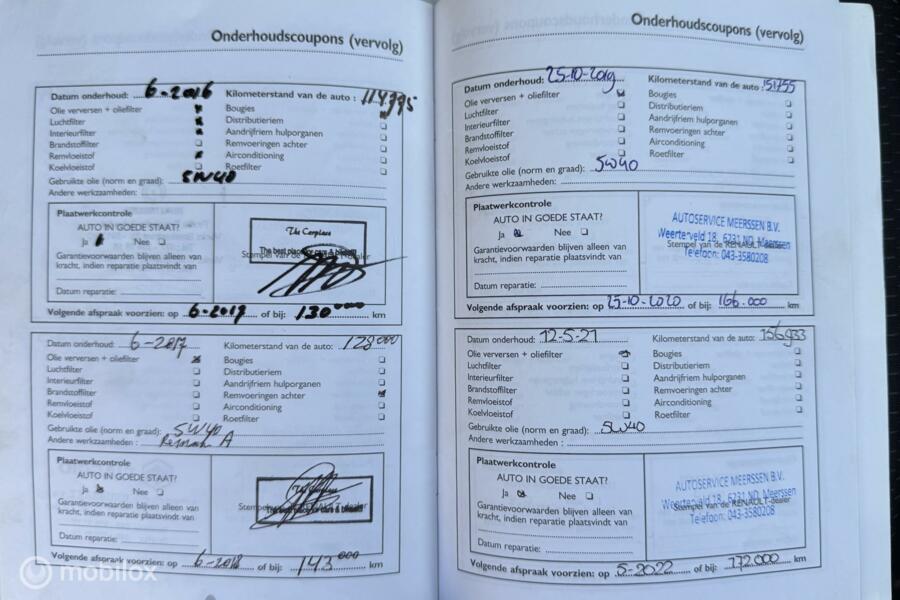 Onderhoudscoupons (vervolg)
Datum onderhoud: 6-2016 Kilometerstand van de auto : 114995
Olie verversen + oliefilter Bougies
Luchtfilter Distributieriem
Interieurfilter Aandrijfriem hulporganen
Brandstoffilter Remvoeringen achter
Remvloeistof Airconditioning
Koelvloeistof Roetfilter
Gebruikte olie (norm en graad): 5W40
Andere werkzaamheden:
Plaatwerkcontrole
AUTO IN GOEDE STAAT?
Ja Nee
Garantievoorwaarden blijven alleen van
kracht, indien reparatie plaatsvindt van
Datum reparatie:
The Carplace
Stempel van de
Volgende afspraak voorzien: op 6-2017 of bij: 130000 km
Datum onderhoud: 6-2017 Kilometerstand van de auto: 128000
Olie verversen + oliefilter Bougies
Luchtfilter Distributieriem
Interieurfilter Aandrijfriem hulporganen
Brandstoffilter Remvoeringen achter
Remvloeistof Airconditioning
Koelvloeistof Roetfilter
Gebruikte olie (norm en graad): 5W40
Andere werkzaamheden : A
Plaatwerkcontrole
AUTO IN GOEDE STAAT?
Ja Nee
Garantievoorwaarden blijven alleen van
kracht, indien reparatie plaatsvindt van
Datum reparatie:
Volgende afspraak voorzien: op 6-2018 of bij: 143000 km
Onderhoudscoupons (vervolg)
Datum onderhoud: 25-10-2019 Kilometerstand van de auto : 151755
Olie verversen + oliefilter Bougies
Luchtfilter Distributieriem
Interieurfilter Aandrijfriem hulporganen
Brandstoffilter Remvoeringen achter
Remvloeistof Airconditioning
Koelvloeistof Roetfilter
Gebruikte olie (norm en graad): 5W40
Andere werkzaamheden:
Plaatwerkcontrole
AUTO IN GOEDE STAAT?
Ja Nee
Garantievoorwaarden blijven alleen van
kracht, indien reparatie plaatsvindt van
Datum reparatie:
AUTOSERVICE MEERSSEN B.V.
Weerterveld 18, 6231 ND Meerssen
Stempel van de RENAULT-dealer
Telefoon: 043-3580208
Volgende afspraak voorzien: op 25-10-2020 of bij: 166.000 km
Datum onderhoud: 12-5-21 Kilometerstand van de auto: 156933
Olie verversen + oliefilter Bougies
Luchtfilter Distributieriem
Interieurfilter Aandrijfriem hulporganen
Brandstoffilter Remvoeringen achter
Remvloeistof Airconditioning
Koelvloeistof Roetfilter
Gebruikte olie (norm en graad): 5W40
Andere werkzaamheden :
Plaatwerkcontrole
AUTO IN GOEDE STAAT?
Ja Nee
Garantievoorwaarden blijven alleen van
kracht, indien reparatie plaatsvindt van
Datum reparatie:
AUTOSERVICE MEERSSEN B.V.
Weerterveld 18, 6231 ND Meerssen
Stempel van de RENAULT-dealer
Telefoon: 043-3580208
Volgende afspraak voorzien: op 5-2022 of bij: 172.000 km
mobilox